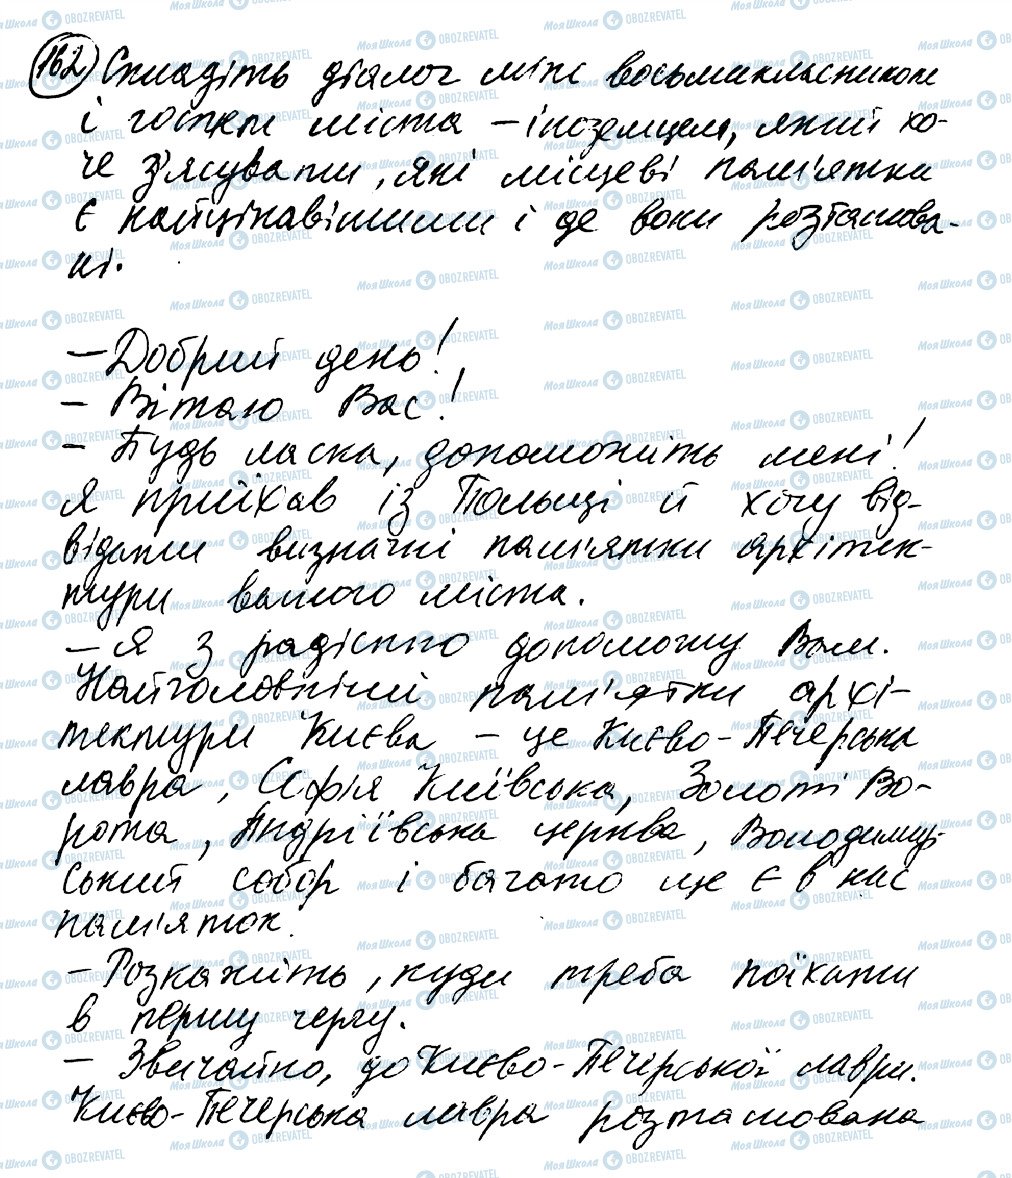 162 Складіть діалог між восьмикласником
і гостем міста – іноземцем, який хо-
че з'ясувати, які місцеві пам'ятки
є найцікавішими і де вони розташова-
ні.
– Добрий день!
– Вітаю Вас!
– Будь ласка, допоможіть мені!
Я приїхав із Польщі й хочу від-
відати визначні пам'ятки архітек-
тури вашого міста.
– Я з радістю допоможу Вам.
Найголовніші пам'ятки архі-
тектури Києва – це Києво-Печерська
лавра, Софія Київська, Золоті Во-
рота, Андріївська церква, Володимир-
ський собор і багато ще є в нас
пам'яток.
– Розкажіть, куди треба поїхати
в першу чергу.
– Звичайно, до Києво-Печерської лаври.
Києво-Печерська лавра розташована
МояШкола OBOZREVATEL